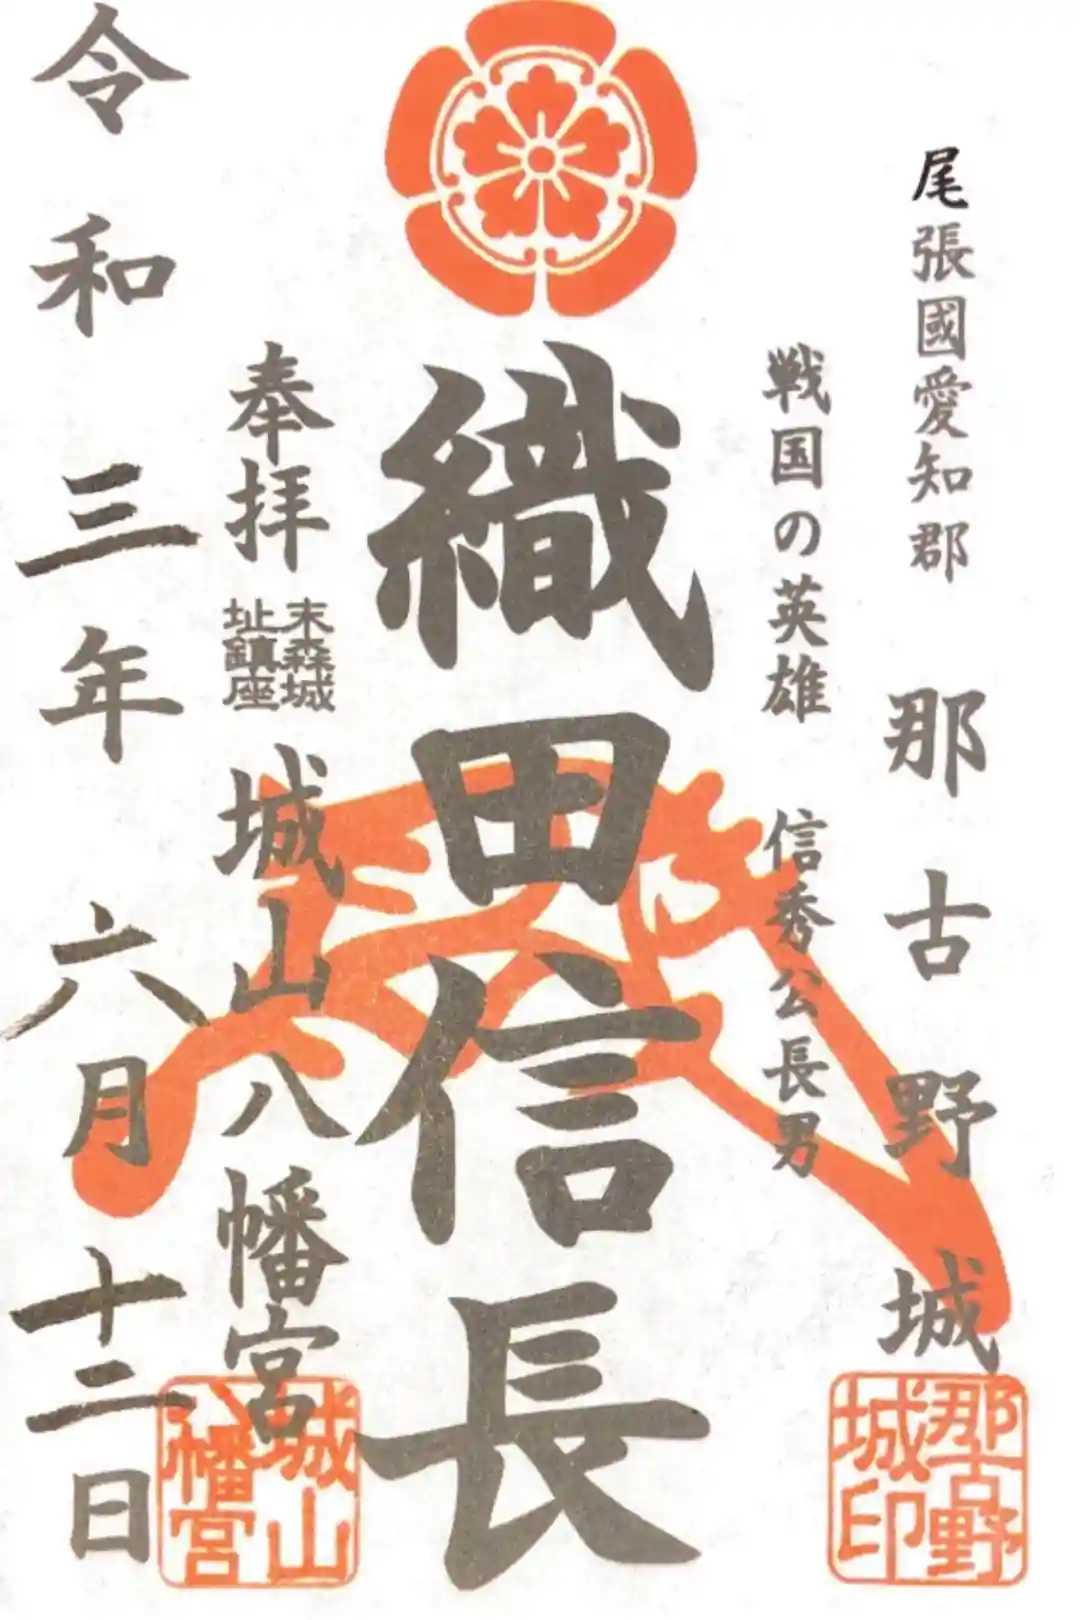 尾張國愛知郡 那古野城
戦国の英雄 信秀公長男
織田信長
奉拝 末森城址鎮座 城山八幡宮
令和三年六月十二日
那古野城印
城山八幡宮